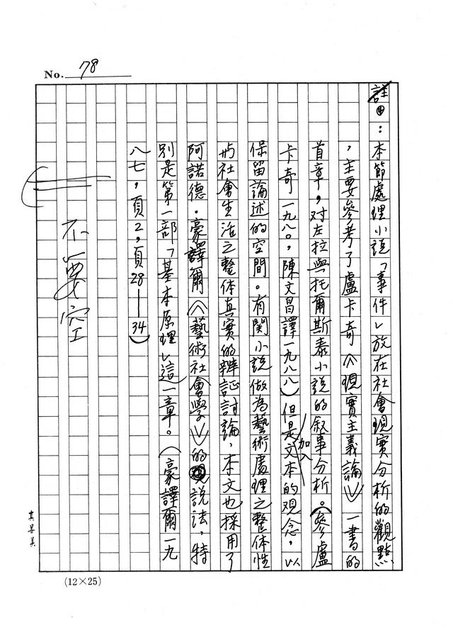 No. 78
註①：本節處理小說「事件」放在社會現實分析的觀點
，主要參考了盧卡奇《現實主義論》一書的
首章，對左拉與托爾斯泰小說的敘事分析。（參盧
卡奇一九八〇，陳文昌譯一九八八）但是加入文本的觀念，以
保留論述的空間。有関小說做為藝術處理之整体性
與社會生活之整体真實的辯証討論，本文也採用了
阿諾德．豪譯爾《藝術社會學》的說法，特
別是第一部「基本原理」這一章。（豪譯爾一九
八七，頁2，頁28—34）
不要空
(12×25)